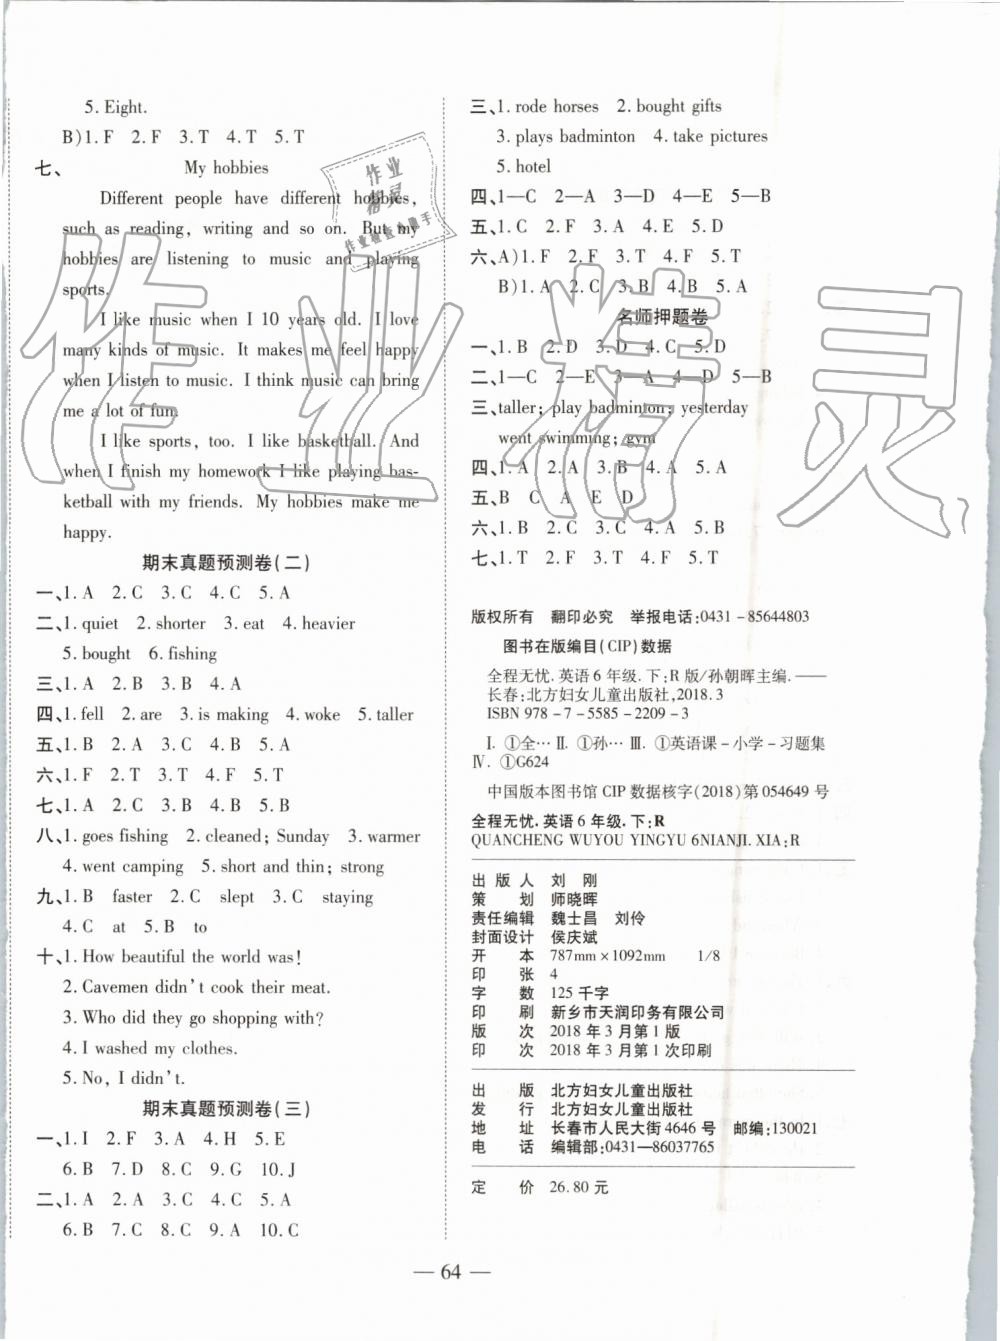 5. Eight.
B)1. F 2. F 3. T 4. T 5. T
七、 My hobbies
Different people have different hobbies,
such as reading, writing and so on. But my
hobbies are listening to music and playing
sports.
I like music when I 10 years old. I love
many kinds of music. It makes me feel happy
when I listen to music. I think music can bring
me a lot of fun.
I like sports, too. I like basketball. And
when I finish my homework I like playing bas-
ketball with my friends. My hobbies make me
happy.
期末真题预测卷(二)
一、1. A 2. C 3. C 4. C 5. A
二、1. quiet 2. shorter 3. eat 4. heavier
5. bought 6. fishing
三、1. A 2. B 3. B 4. A
四、1. fell 2. are 3. is making 4. woke 5. taller
五、1. B 2. A 3. C 4. B 5. A
六、1. F 2. T 3. T 4. F 5. T
七、1. A 2. B 3. B 4. B 5. B
八、1. goes fishing 2. cleaned; Sunday 3. warmer
4. went camping 5. short and thin; strong
九、1. B faster 2. C slept 3. C staying
4. C at 5. B to
十、1. How beautiful the world was!
2. Cavemen didn't cook their meat.
3. Who did they go shopping with?
4. I washed my clothes.
5. No, I didn't.
期末真题预测卷(三)
一、1. I 2. F 3. A 4. H 5. E
6. B 7. D 8. C 9. G 10. J
二、1. A 2. A 3. C 4. C 5. A
6. B 7. C 8. C 9. A 10. C
三、1. rode horses 2. bought gifts
3. plays badminton 4. take pictures
5. hotel
四、1—C 2—A 3—D 4—E 5—B
五、1. C 2. F 3. A 4. E 5. D
六、A)1. F 2. F 3. T 4. F 5. T
B)1. A 2. C 3. B 4. B 5. A
名师押题卷
一、1. B 2. D 3. D 4. C 5. D
二、1—C 2—E 3—A 4—D 5—B
三、taller; play badminton; yesterday
went swimming; gym
四、1. A 2. A 3. B 4. A 5. A
五、B C A E D
六、1. B 2. C 3. C 4. A 5. B
七、1. T 2. F 3. T 4. F 5. T
版权所有 翻印必究 举报电话:0431-85644803
图书在版编目(CIP)数据
全程无忧.英语6年级.下:R版/孙朝晖主编.——
长春:北方妇女儿童出版社,2018.3
ISBN 978-7-5585-2209-3
Ⅰ.①全… Ⅱ.①孙… Ⅲ.①英语课-小学-习题集
Ⅳ.①G624
中国版本图书馆CIP数据核字(2018)第054649号
全程无忧.英语6年级.下:R
QUANCHENG WUYOU YINGYU 6NIANJI. XIA:R
出版人 刘 刚
策 划 师晓晖
责任编辑 魏士昌 刘伶
封面设计 侯庆斌
开 本 787mm×1092mm 1/8
印 张 4
字 数 125千字
印 刷 新乡市天润印务有限公司
版 次 2018年3月第1版
印 次 2018年3月第1次印刷
出 版 北方妇女儿童出版社
发 行 北方妇女儿童出版社
地 址 长春市人民大街4646号 邮编:130021
电 话 编辑部:0431—86037765
定 价 26.80元
— 64 —
作业精灵
作业
精灵
作业检查小助手